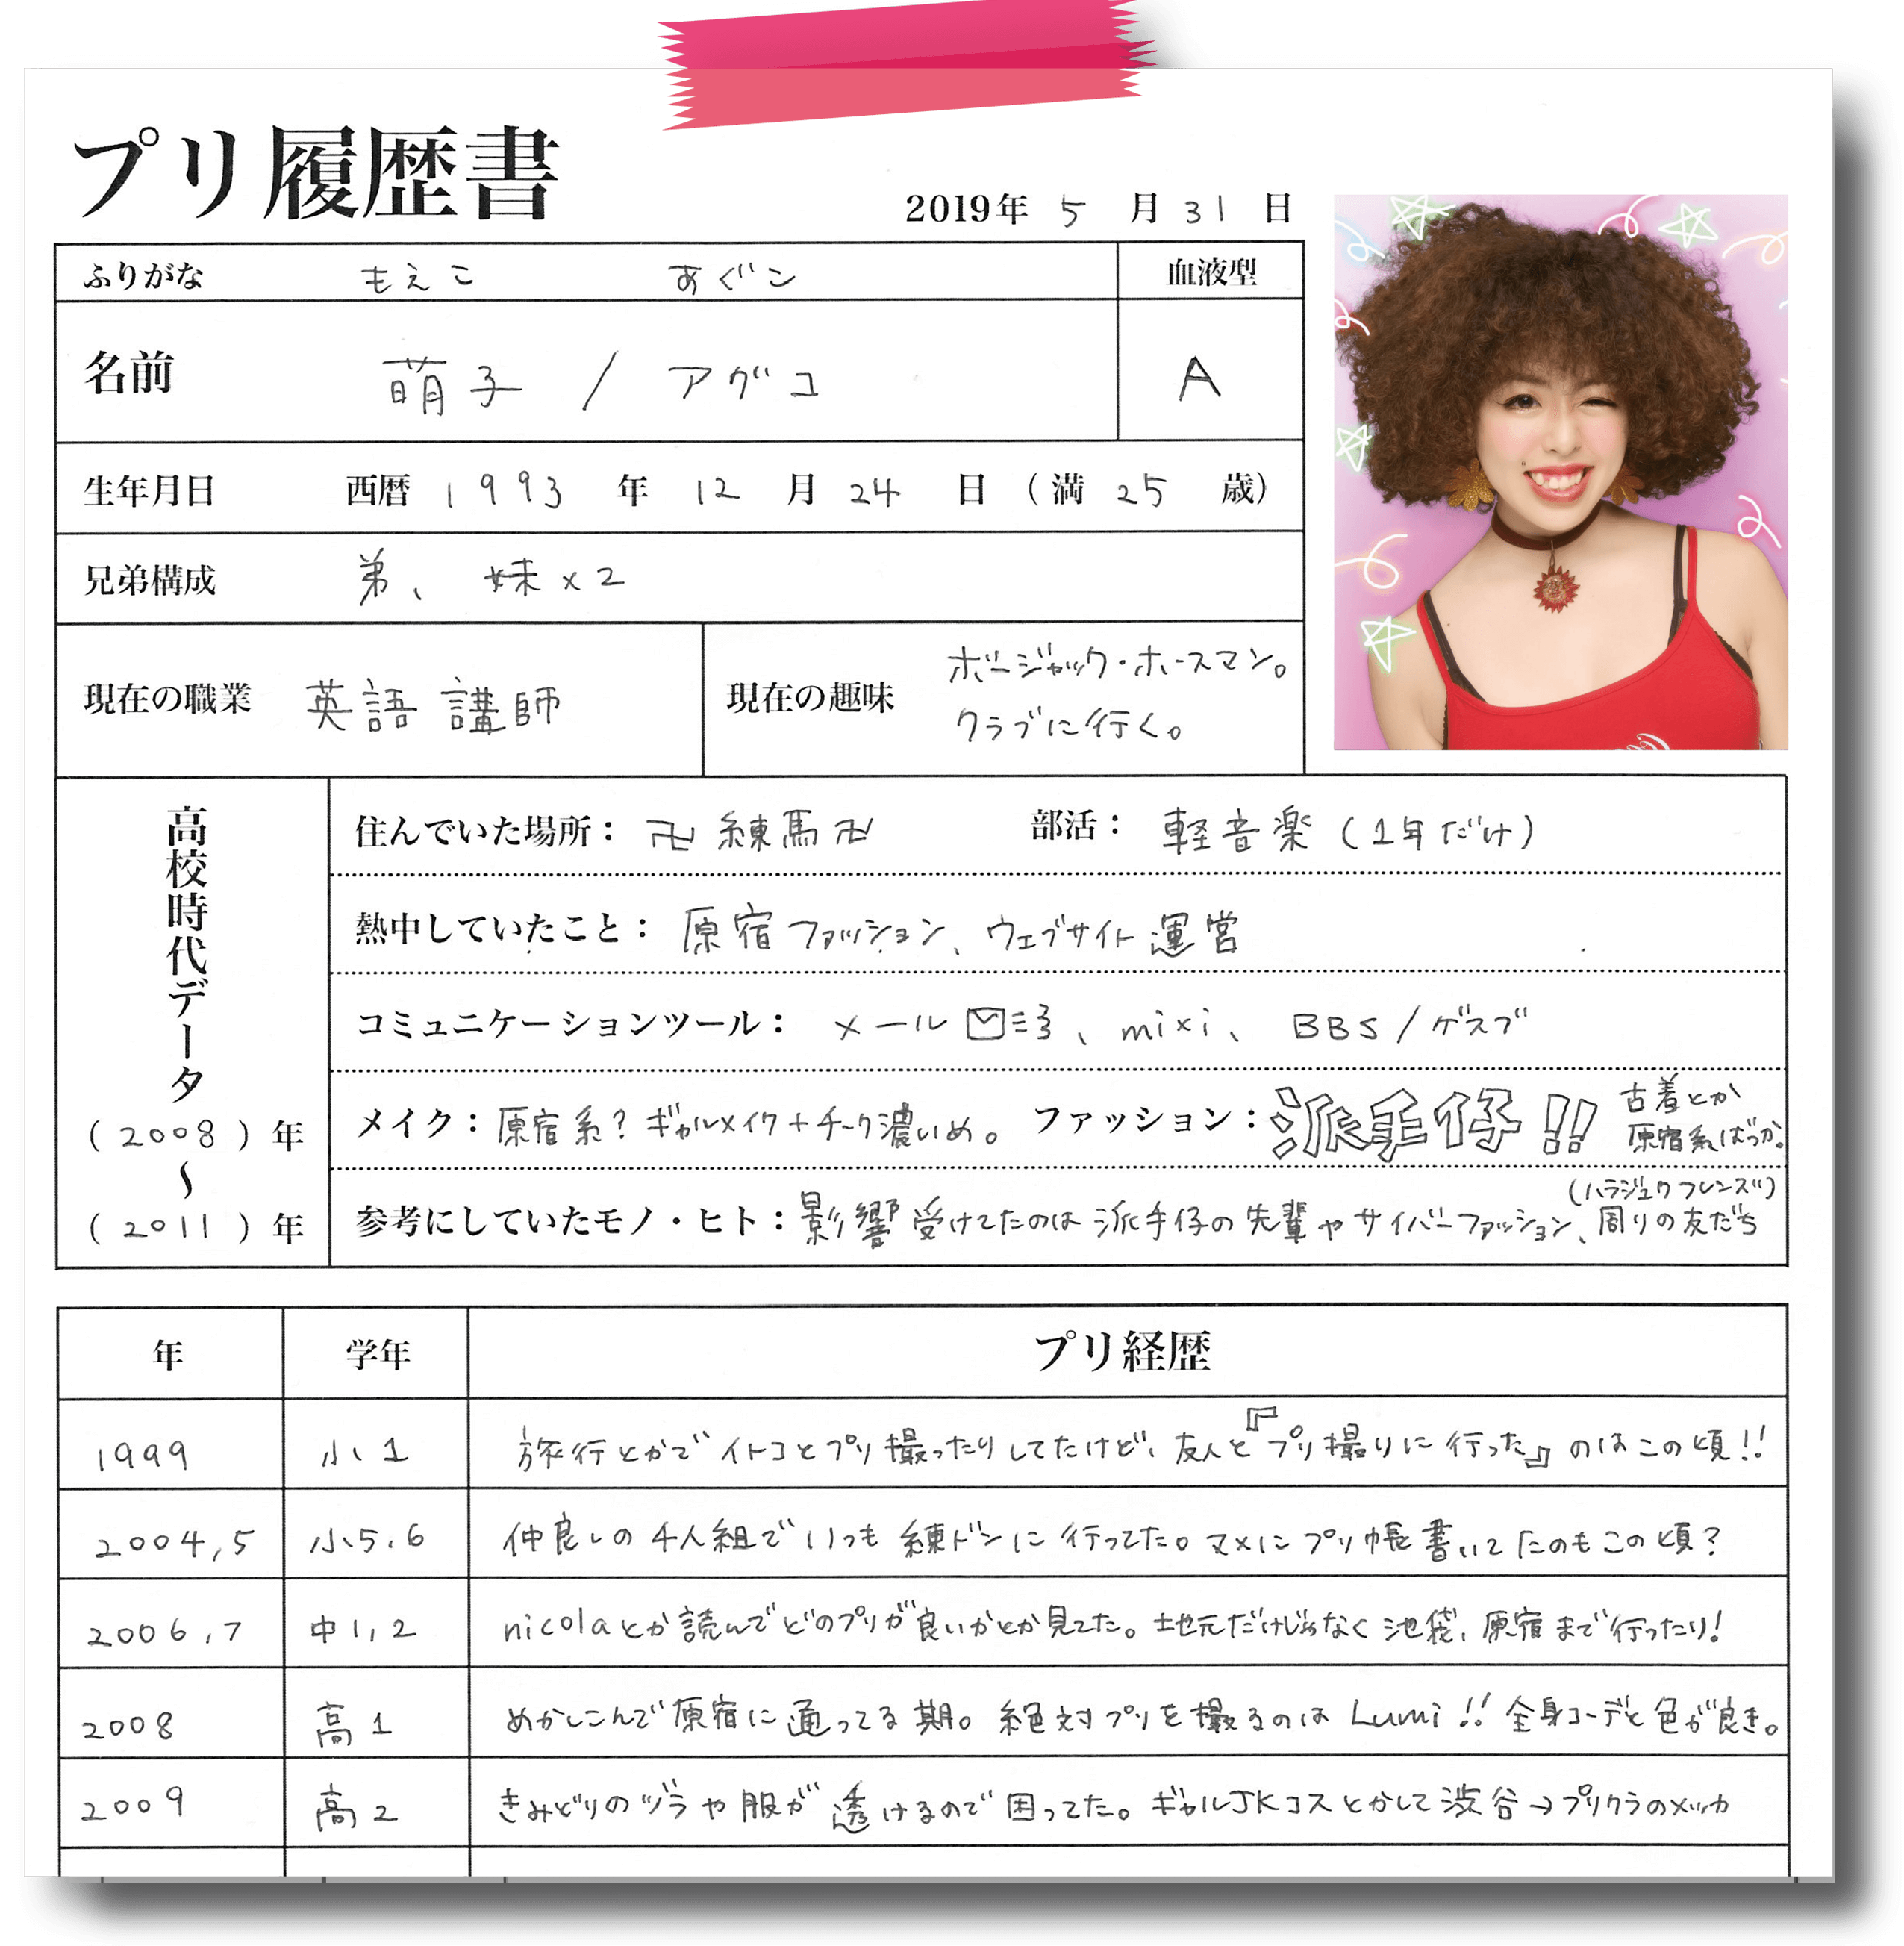 プリ履歴書
2019年 5 月 31 日
ふりがな もえこ あぐこ 血液型
名前 萌子 / アグコ A
生年月日 西暦 1993 年 12 月 24 日 (満 25 歳)
兄弟構成 弟、妹×2
現在の職業 英語講師 現在の趣味 ボージャック・ホースマン。
クラブに行く。
高校時代データ
(2008)年
〜
(2011)年
住んでいた場所： 卍練馬卍 部活： 軽音楽(1年だけ)
熱中していたこと： 原宿ファッション、ウェブサイト運営
コミュニケーションツール： メール、mixi、BBS/ゲスブ
メイク：原宿系?ギャルメイク+チーク濃いめ。 ファッション：派手仔!! 古着とか
原宿系ばっか。
(ハラジュクフレンズ)
参考にしていたモノ・ヒト：影響受けてたのは派手仔の先輩やサイバーファッション、周りの友だち
年 学年 プリ経歴
1999 小1 旅行とかでイトコとプリ撮ったりしてたけど、友人と『プリ撮りに行った』のはこの頃!!
2004,5 小5,6 仲良しの4人組でいつも練ドンに行ってた。マメにプリ帳書いてたのもこの頃?
2006,7 中1,2 nicolaとか読んでどのプリが良いかとか見てた。地元だけじゃなく池袋、原宿まで行ったり!
2008 高1 めかしこんで原宿に通ってる期。絶対プリを撮るのはLumi!!全身コーデと色が良き。
2009 高2 きみどりのヅラや服が透けるので困ってた。ギャルJKコスとかして渋谷→プリクラのメッカ